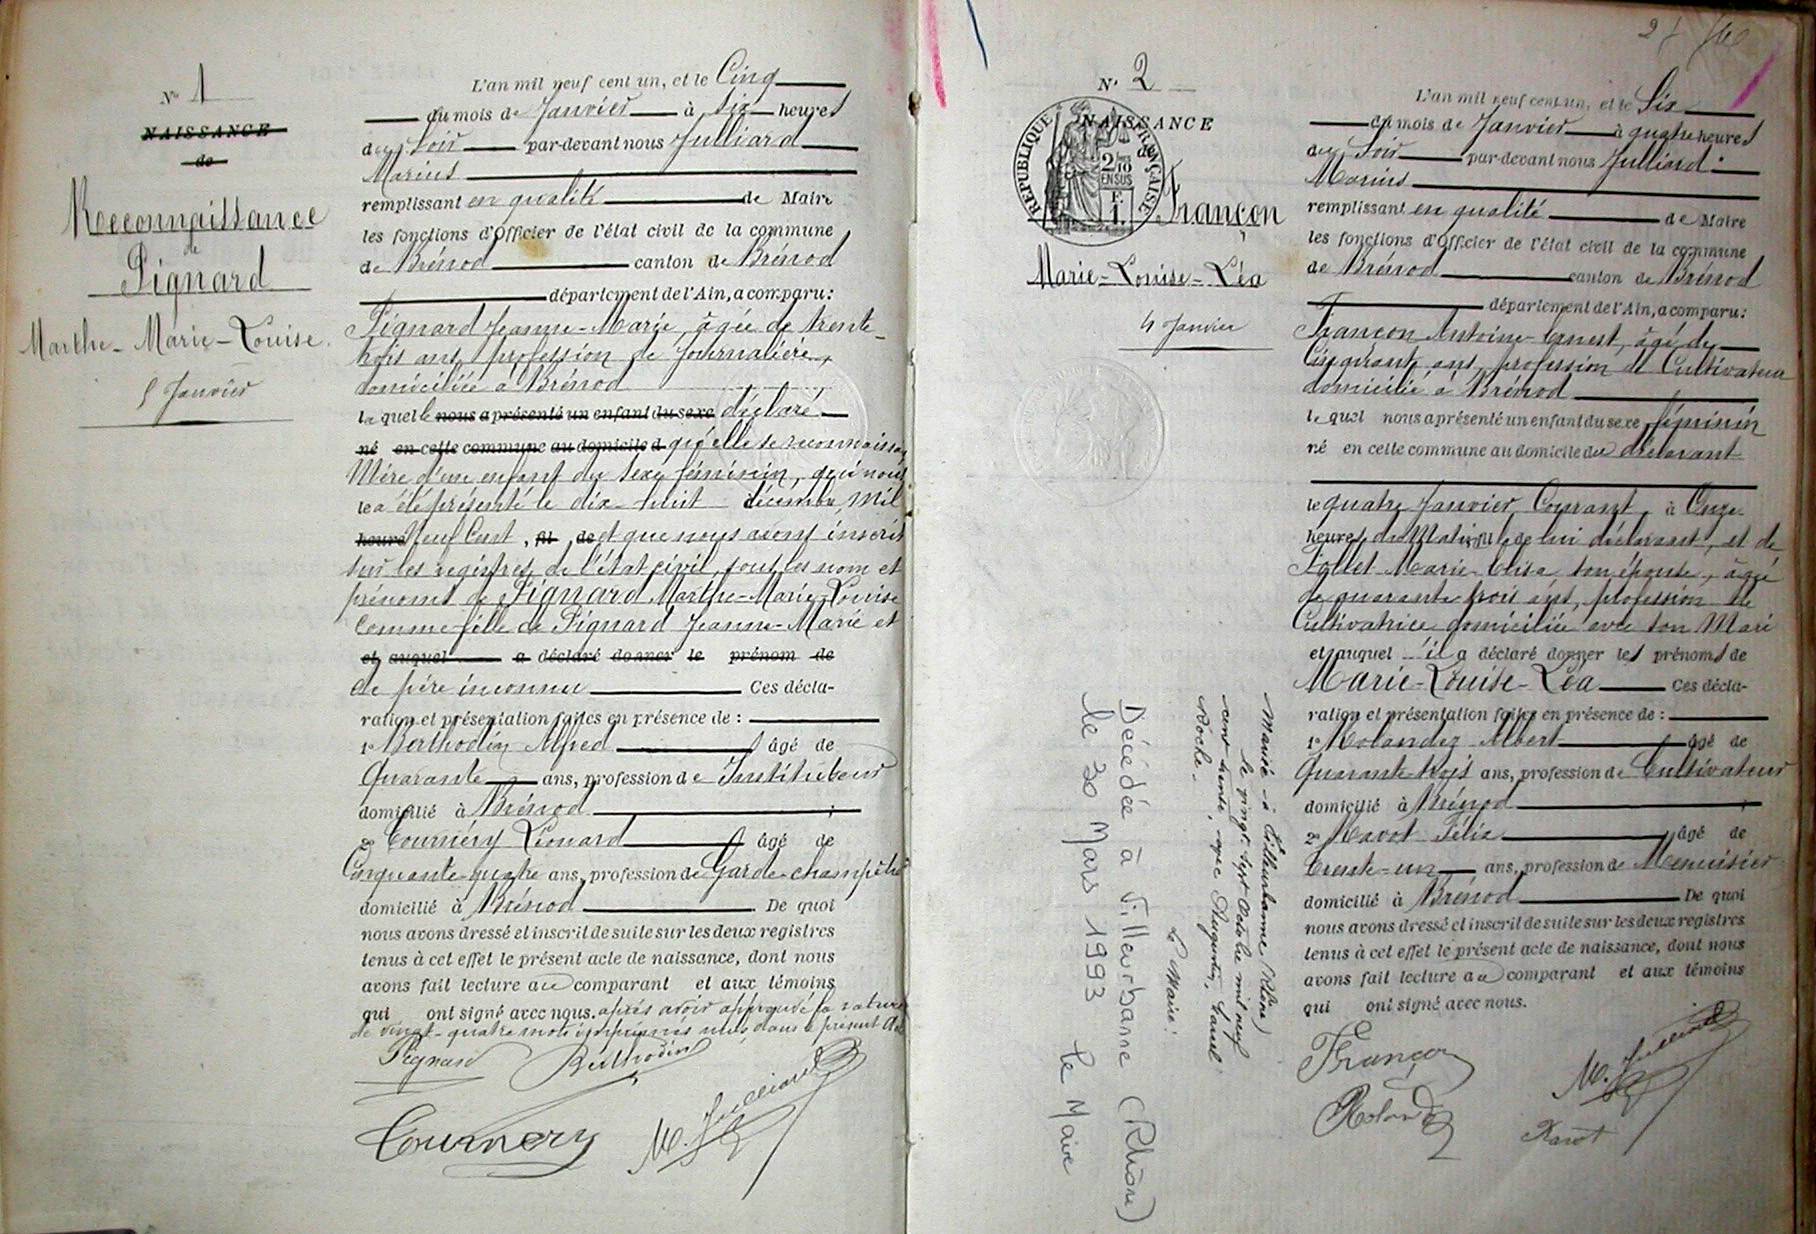 N° 1
NAISSANCE
de
Reconnaissance
de
Pignard
Marthe-Marie-Louise.
5 Janvier
L'an mil neuf cent un, et le Cinq
du mois de Janvier à six heures
du Soir par-devant nous Julliard
Marius
remplissant en qualité de Maire
les fonctions d'Officier de l'état civil de la commune
de Brénod canton de Brénod
département de l'Ain, a comparu:
Pignard Jeanne-Marie, âgée de trente-
trois ans, profession de Journalière,
domiciliée à Brénod
laquelle nous a présenté un enfant du sexe déclaré
né en cette commune au domicile d qu'elle se reconnaissait
Mère d'un enfant du sexe féminin, qui nous
le a été présenté le dix-huit décembre, mil
heure Neuf Cent, fil de et que nous avons inscrit
sur les registres de l'état civil, sous les nom et
prénoms de Pignard Marthe-Marie-Louise
comme fille de Pignard Jeanne-Marie et
et auquel a déclaré donner le prénom de
de père inconnu Ces décla-
ration et présentation faites en présence de :
1° Berthodin Alfred âgé de
Quarante ans, profession de Instituteur
domicilié à Brénod ;
2° Tournéry Léonard âgé de
Cinquante-quatre ans, profession de Garde-champêtre
domicilié à Brénod. De quoi
nous avons dressé et inscrit de suite sur les deux registres
tenus à cet effet le présent acte de naissance, dont nous
avons fait lecture au comparant et aux témoins
qui ont signé avec nous. après avoir approuvé la rature
de vingt-quatre mots imprimés nuls dans le présent acte
Pignard Berthodin
Tournery M. Julliard
27
N° 2
NAISSANCE
de
RÉPUBLIQUE FRANÇAISE
2/10 EN SUS
F. 1.
Françon
Marie-Louise-Léa
4 Janvier
Mariée à Villeurbanne (Rhône)
le vingt-sept Octobre mil neuf
cent trente, avec Augustin, Camil
Roche.
Le Maire :
Décédée à Villeurbanne (Rhône)
le 30 Mars 1993 Le Maire
L'an mil neuf cent un, et le Six
du mois de Janvier à quatre heures
du Soir par-devant nous Julliard
Marius
remplissant en qualité de Maire
les fonctions d'Officier de l'état civil de la commune
de Brénod canton de Brénod
département de l'Ain, a comparu:
Françon Antoine-Ernest, âgé de
Cinquante ans, profession de Cultivateur
domicilié à Brénod
lequel nous a présenté un enfant du sexe féminin
né en cette commune au domicile du déclarant
le quatre Janvier Courant, à Onze
heures du Matin, fille de lui déclarant, et de
Follet Marie-Elisa son épouse, âgée
de quarante trois ans, profession de
Cultivatrice domiciliée avec son Mari
et auquel il a déclaré donner les prénoms de
Marie-Louise-Léa Ces décla-
ration et présentation faites en présence de :
1° Rolandez Albert âgé de
Quarante-trois ans, profession de Cultivateur
domicilié à Brénod ;
2° Ravot Félix âgé de
Trente-un ans, profession de Menuisier
domicilié à Brénod De quoi
nous avons dressé et inscrit de suite sur les deux registres
tenus à cet effet le présent acte de naissance, dont nous
avons fait lecture au comparant et aux témoins
qui ont signé avec nous.
Françon M. Julliard
Rolandez Ravot